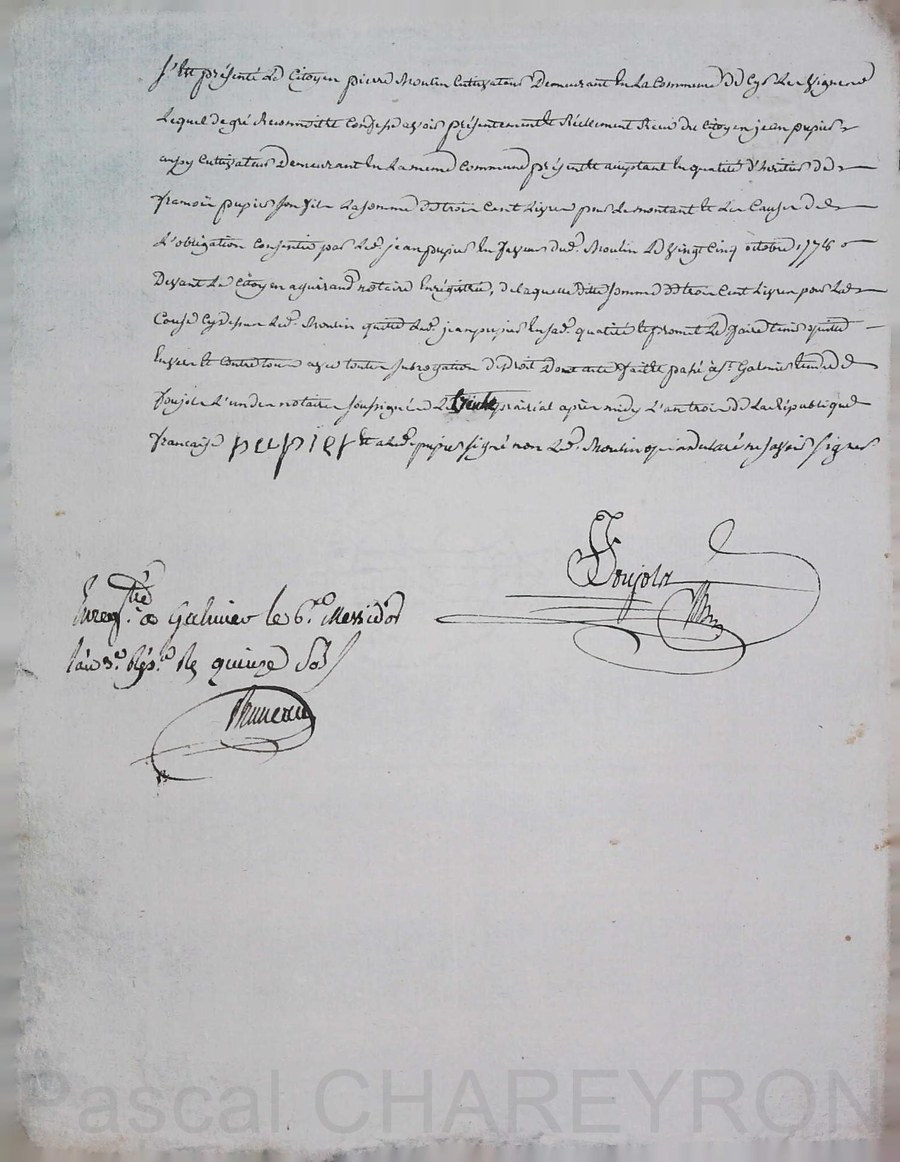 S'est présenté Le Citoyen pierre Moulin Cultivateur Demeurant En La Commune De Les Vignes
Lequel de gré Reconnoit et Confesse avoir présentement et Réellement Receu du Citoyen jean pupier
Cultivateur Demeurant En La même Commune présent et aceptant En qualité d'héritier de
francois pupier son fils La somme De trois Cent Livres pour Le montant et Les Causes de
L'obligation Consentie par Led. jean pupier En faveur dud. Moulin Le Vingt Cinq octobre
Devant Le Citoyen aguirand notaire Enrégistrée, de laquelle ditte somme De trois Cent Livres pour Les
Causes Cy dessus Led. Moulin quitte Led. jean pupier En sad. qualité Et promet Le faire tenir quitte
Envers Et Contre tous avec toutte subrogation De Droit Dont acte fait Et passé à St. Galmier Etude de
Poujols L'un des notaires soussigné Le trente prairial après midy L'an trois De La République
francaise pupier Et a Led. pupier signé non Led. Moulin qui a declaré ne savoir signer
Poujols
Enreg.tré a Galmier le 6.e Messidor
l'an 3.e Rép.e R quinze Sols
Bruneau
Pascal CHAREYRON